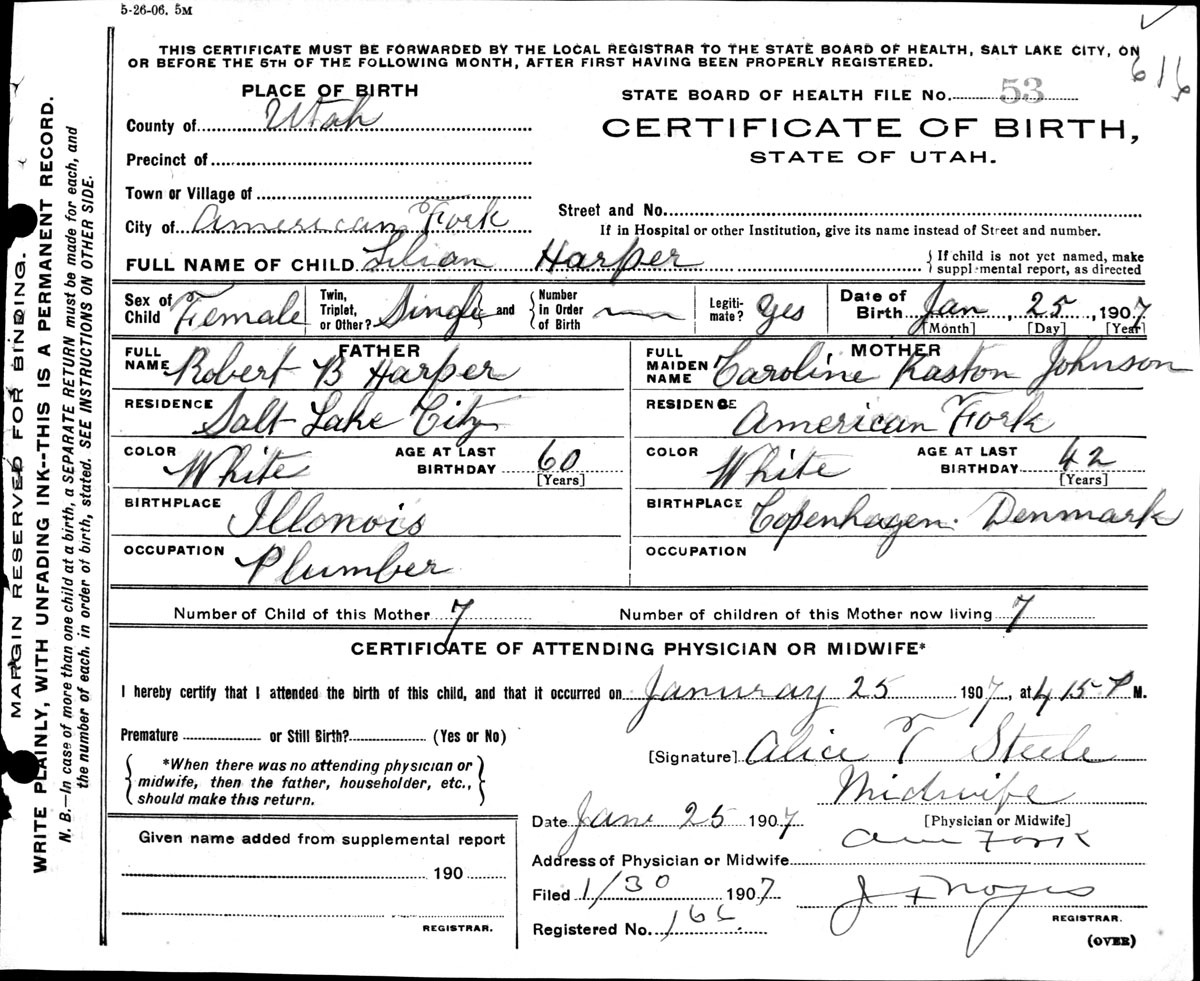 5-26-06. 5M
THIS CERTIFICATE MUST BE FORWARDED BY THE LOCAL REGISTRAR TO THE STATE BOARD OF HEALTH, SALT LAKE CITY, ON
OR BEFORE THE 5TH OF THE FOLLOWING MONTH, AFTER FIRST HAVING BEEN PROPERLY REGISTERED.
PLACE OF BIRTH
STATE BOARD OF HEALTH FILE No. 53
County of Utah
CERTIFICATE OF BIRTH,
STATE OF UTAH.
Precinct of
Town or Village of
City of American Fork
Street and No.
If in Hospital or other Institution, give its name instead of Street and number.
FULL NAME OF CHILD Lilian Harper
If child is not yet named, make
supplemental report, as directed
Sex of Child Female
Twin, Triplet, or Other? Single and
Number in Order of Birth
Legiti-mate? Yes
Date of Birth Jan, 25, 1907
[Month] [Day] [Year]
FATHER
FULL NAME Robert B Harper
RESIDENCE Salt Lake City
COLOR White
AGE AT LAST BIRTHDAY 60 [Years]
BIRTHPLACE Illonois
OCCUPATION Plumber
MOTHER
FULL MAIDEN NAME Caroline Kaston Johnson
RESIDENCE American Fork
COLOR White
AGE AT LAST BIRTHDAY 42 [Years]
BIRTHPLACE Copenhagen. Denmark
OCCUPATION
Number of Child of this Mother 7
Number of children of this Mother now living 7
CERTIFICATE OF ATTENDING PHYSICIAN OR MIDWIFE*
I hereby certify that I attended the birth of this child, and that it occurred on Januray 25 1907, at 4 15 P M.
Premature or Still Birth? (Yes or No)
[Signature] Alice T Steele
*When there was no attending physician or
midwife, then the father, householder, etc.,
should make this return.
Midwife
[Physician or Midwife]
Date Jan 25 1907
Am Fork
Address of Physician or Midwife
Filed 1/30 1907
REGISTRAR.
Registered No.
(OVER)
Given name added from supplemental report
190
REGISTRAR.
MARGIN RESERVED FOR BINDING.
WRITE PLAINLY, WITH UNFADING INK--THIS IS A PERMANENT RECORD.
N. B.—In case of more than one child at a birth, a SEPARATE RETURN must be made for each, and
the number of each, in order of birth, stated. SEE INSTRUCTIONS ON OTHER SIDE.